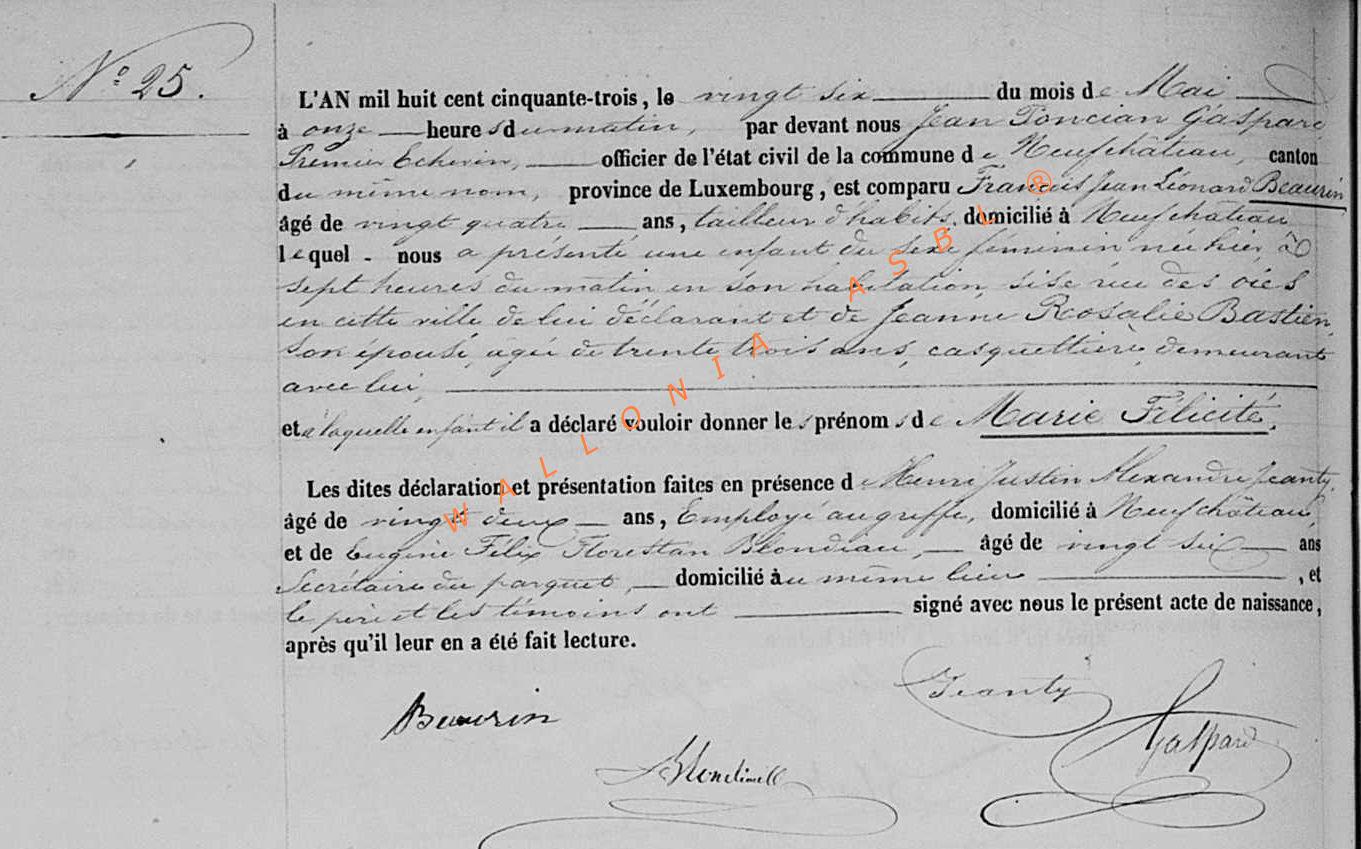 N° 25.
L'AN mil huit cent cinquante-trois, le vingt six du mois de Mai
à onze heures du matin, par devant nous Jean Poncian Gaspard
Premier Echevin, officier de l'état civil de la commune de Neufchâteau, canton
du même nom, province de Luxembourg, est comparu François Jean Léonard Beaurin
âgé de vingt quatre ans, tailleur d'habits, domicilié à Neufchâteau
lequel nous a présenté une enfant du sexe féminin, née hier, à
sept heures du matin en son habitation, sise rue des oies
en cette ville de lui déclarant et de Jeanne Rosalie Bastien,
son épouse, agée de trente trois ans, casquettière, demeurant
avec lui,
et à laquelle enfant il a déclaré vouloir donner les prénoms de Marie Félicité.
Les dites déclaration et présentation faites en présence de Henri Justin Alexandre Jeanty,
âgé de vingt deux ans, Employé au greffe, domicilié à Neufchâteau,
et de Eugène Félix Florestan Blondiau, âgé de vingt six ans
Secrétaire du parquet, domicilié au même lieu, et
le père et les témoins ont signé avec nous le présent acte de naissance,
après qu'il leur en a été fait lecture.
Jeanty
Beaurin
Gaspard
WALLONIA ASBL ®